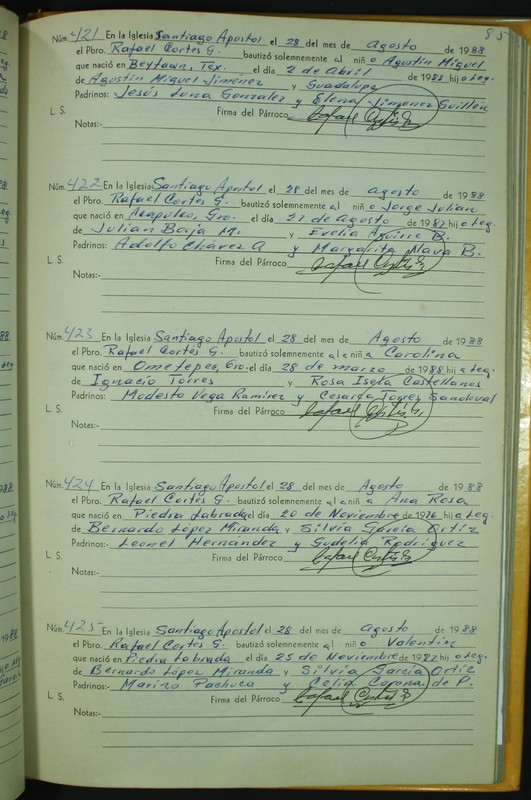 85
Núm. 421 En la Iglesia Santiago Apostol el 28 del mes de agosto de 1988
el Pbro. Rafael Cortés G. bautizó solemnemente al niño Agustin Miguel
que nació en Beytown, Tex. el día 2 de Abril de 1988 hijo Leg.
de Agustin Miguel Jimenez y Guadalupe
Padrinos: Jesús Luna Gonzalez y Elena Jimenez Guillén
L. S. Firma del Párroco Rafael Cortés G
Notas:-
Núm. 422 En la Iglesia Santiago Apostol el 28 del mes de agosto de 1988
el Pbro. Rafael Cortés G. bautizó solemnemente al niño Jorge Julian
que nació en Acapulco, Gro. el día 27 de Agosto de 1987 hijo Leg.
de Julian Borja M. y Evelia Aguirre B.
Padrinos: Adolfo Chávez A y Margarita Nava B.
L. S. Firma del Párroco Rafael Cortés G
Notas:-
Núm. 423 En la Iglesia Santiago Apostol el 28 del mes de Agosto de 1988
el Pbro. Rafael Cortés G. bautizó solemnemente al a niña Carolina
que nació en Ometepec, Gro. el día 28 de marzo de 1988 hija Leg.
de Ignacio Torres y Rosa Isela Castellanos
Padrinos: Modesto Vega Ramirez y Cesarea Torres Sandoval
L. S. Firma del Párroco Rafael Cortés G
Notas:-
Núm. 424 En la Iglesia Santiago Apostol el 28 del mes de Agosto de 1988
el Pbro. Rafael Cortés G. bautizó solemnemente al a niña Ana Rosa
que nació en Piedra Labrada el día 20 de Noviembre de 1976 hija Leg.
de Bernardo López Miranda y Silvia García Ortíz
Padrinos: Leonel Hernández y Gudelia Rodríguez
L. S. Firma del Párroco Rafael Cortés G
Notas:-
Núm. 425 En la Iglesia Santiago Apostol el 28 del mes de agosto de 1988
el Pbro. Rafael Cortés G. bautizó solemnemente al niño Valentin
que nació en Piedra Labrada el día 25 de Noviembre de 1987 hijo Leg.
de Bernardo López Miranda y Silvia García Ortiz
Padrinos: Marino Pacheca y Celia Corona de P.
L. S. Firma del Párroco Rafael Cortés G
Notas:-